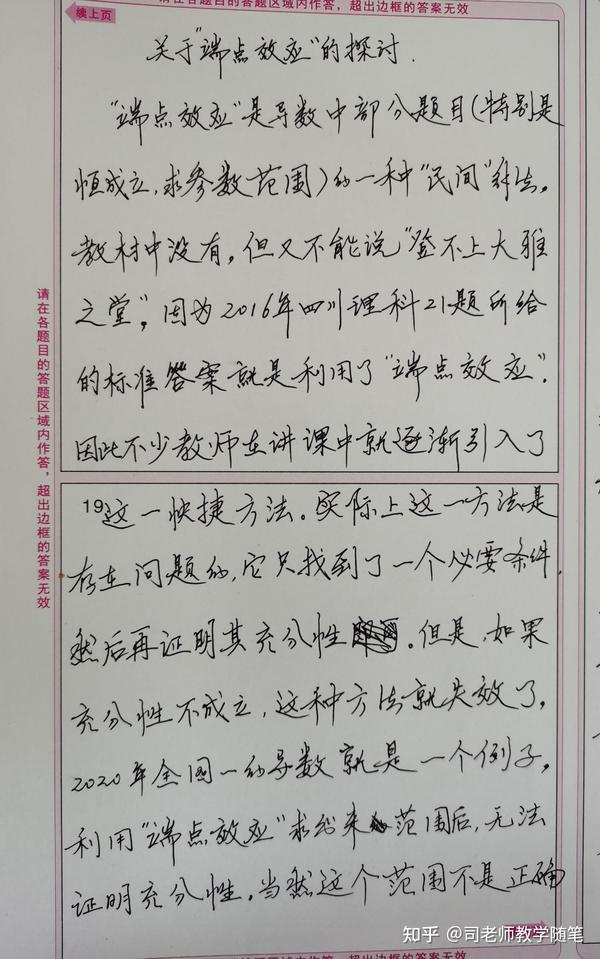 请在各题目的答题区域内作答，超出边框的答案无效
续上页
关于"端点效应"的探讨.
"端点效应"是导数中部分题目(特别是
恒成立,求参数范围)的一种"民间"解法,
教材中没有,但又不能说"登不上大雅
之堂",因为2016年四川理科21题所给
的标准答案就是利用了"端点效应".
因此不少教师在讲课中就逐渐引入了
请在各题目的答题区域内作答，超出边框的答案无效
19
这一快捷方法。实际上这一方法是
存在问题的,它只找到了一个必要条件,
然后再证明其充分性。但是,如果
充分性不成立,这种方法就失效了,
2020年全国一的导数就是一个例子,
利用"端点效应"求出来范围后,无法
证明充分性,当然这个范围不是正确
知乎 @司老师教学随笔